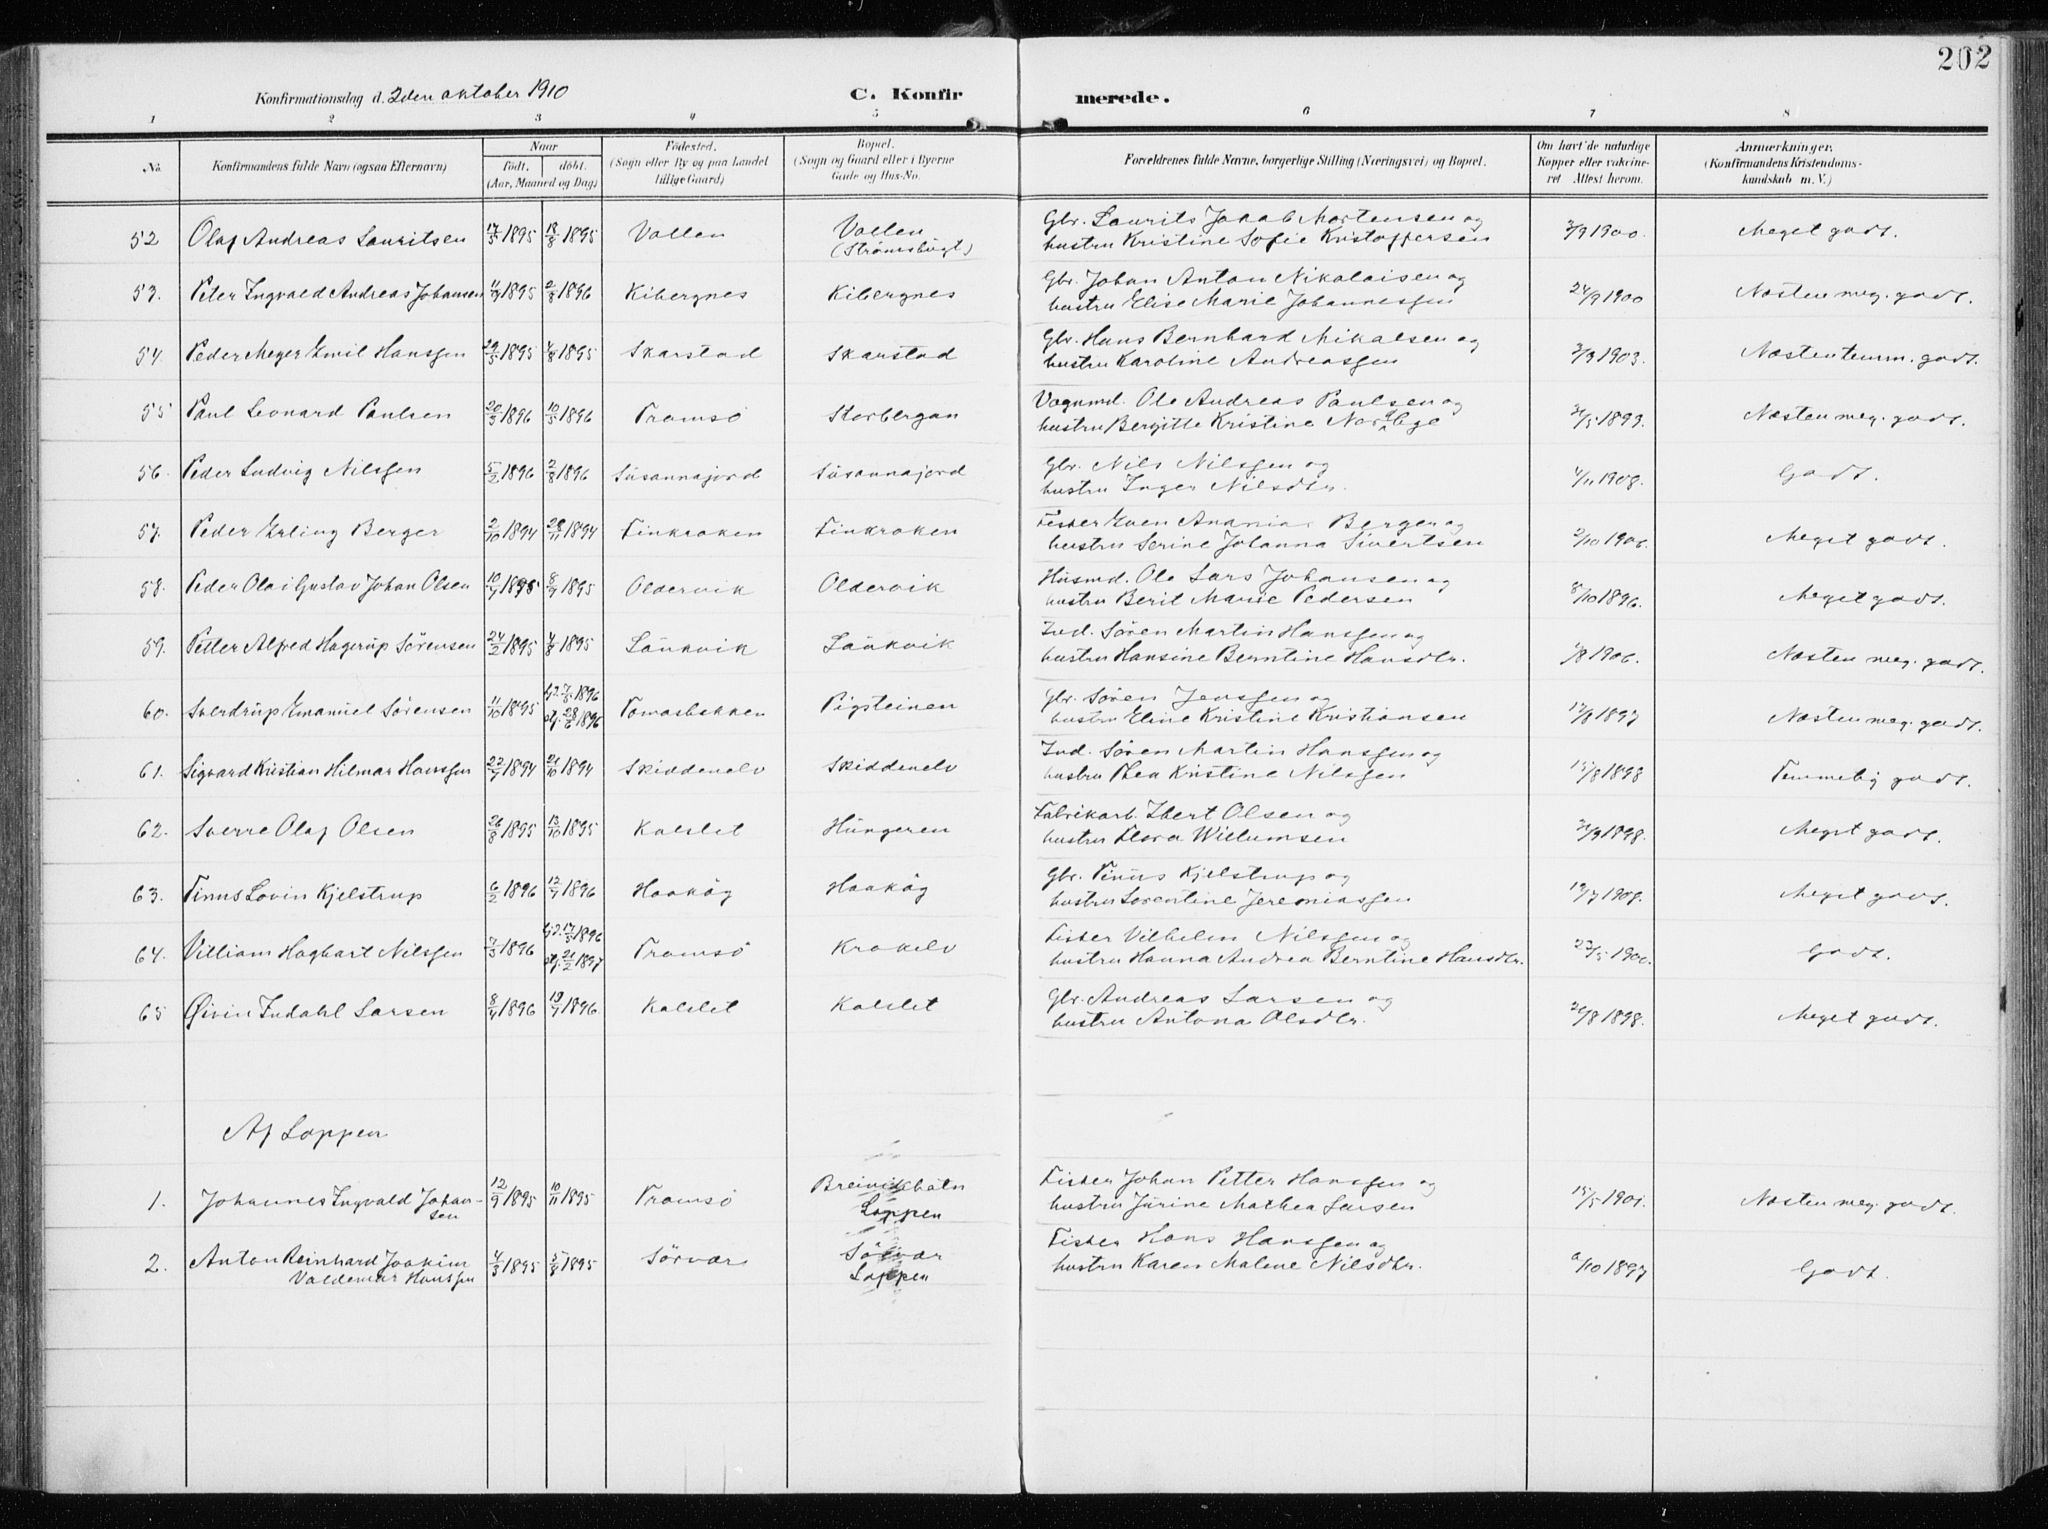 202
Konfirmationsdag d. 2den oktober 1910 C. Konfirmerede.
1 2 3 4 5 6 7 8
No. Konfirmandens fulde Navn (ogsaa Efternavn) Naar født. døbt. (Aar, Maaned og Dag) Fødested. (Sogn eller By og paa Landet tillige Gaard) Bopæl. (Sogn og Gaard eller i Byerne Gade og Hus-No. Forældrenes fulde Navne, borgerlige Stilling (Næringsvei) og Bopæl. Om havt de naturlige Kopper eller vakcineret Attest herom. Anmærkninger. (Konfirmandens Kristendomskundskab m. V.)
52 Olaf Andreas Lauritsen 17/5 1895 18/8 1895 Vollen Vollen (Strømsbugt) Gbr. Laurits Jakob Mortensen og hustru Kristine Sofie Kristoffersen 2/9 1900. Meget godt.
53. Peter Ingvald Andreas Johansen 1895 2/8 1896 Kibergnes Kibergnes Gbr. Johan Anton Nikolaisen og hustru Elise Marie Johannessen 24/9 1900 Næsten meg. godt.
54. Peder Meyer Emil Hanssen 29/5 1895 4/8 1895 Skarstad Skarstad Gbr. Hans Bernhard Mikalsen og hustru Karoline Andreassen 1903. Næsten temm. godt.
55 Paul Leonard Paulsen 20/3 1896 10/5 1896 Tromsö Storbergan Vognmd. Ole Andreas Paulsen og hustru Bergitte Kristine 1899. Næsten meg. godt.
56. Peder Ludvig Nilssen 5/2 1896 2/8 1896 Süsannajord Süsannajord Gbr. Nils Nilssen og hustru Inger Nilsdtr. 4/11 1908. Godt.
57. Peder Erling Berger 2/10 1894 1894 Finkroken Finkroken Fisker Even Ananias Berger og hustru Serine Johanna Sivertsen 2/10 1906. Meget godt.
58. Peder Olai Gustav Johan Olsen 1895 1895 Oldervik Oldervik Husmd. Ole Lars Johansen og hustru Berit Marie Pedersen 8/10 1896. Meget godt.
59. Petter Alfred Hagerup Sörensen 24/2 1895 4/8 1895 Laükvik Laükvik Ind. Søren Martin Hanssen og hustru Hansine Berntine Hansdtr. 1/8 1906. Næsten meg. godt.
60. Sverdrup Emanuel Sörensen 11/10 1895 1896 28/6 1896 Tomasbakken Pigsteinen Gbr. Søren Jenssen og hustru Eline Kristine Kristiansen 1897 Næsten meg. godt.
61. Sigvard Kristian Hilmar Hanssen 1894 21/10 1894 Skiddenelv Skiddenelv Ind. Søren Martin Hanssen og hustru Thea Kristine Nilssen 15/8 1898 Temmelig godt.
62. Sverre Olaf Olsen 26/8 1895 13/10 1895 Kalslet Hüngeren Fabrikarb. Ebert Olsen og hustru Flora Willumsen 1898. Meget godt.
63. Tinus Lovin Kjelstrup 6/2 1896 12/7 1896 Haakög Haakög Gbr. Tinüs Kjelstrup og hustru Lorentine Jeremiassen Meget godt.
64. Villiam Hagbart Nilssen 7/3 1896 17/5 1896 21/2 1897 Tromsö Krokelv Fisker Vilhelm Nilssen og hustru Hanna Andrea Berntine Hansdtr. 23/5 1900. Godt.
65 Øivin Indahl Larsen 8/4 1896 19/7 1896. Kalslet Kalslet Gbr. Andreas Larsen og hustru Antona Olsdtr. 1898. Meget godt.
Af Loppen
1. Johannes Ingvald Johansen 12/9 1895 10/11 1895 Tromsö Breivikbotn Loppen Fisker Johan Petter Hanssen og hustru Jürine Mathea Larsen 15/5 1901. Næsten meg. godt.
2. Anton Reinhard Joakim Valdemar Hanssen 4/3 1895 5/8 1895 Sörvær Sörvær Loppen Fisker Hans Hanssen og hustru Karen Malene Nilsdtr. 1897 Godt.